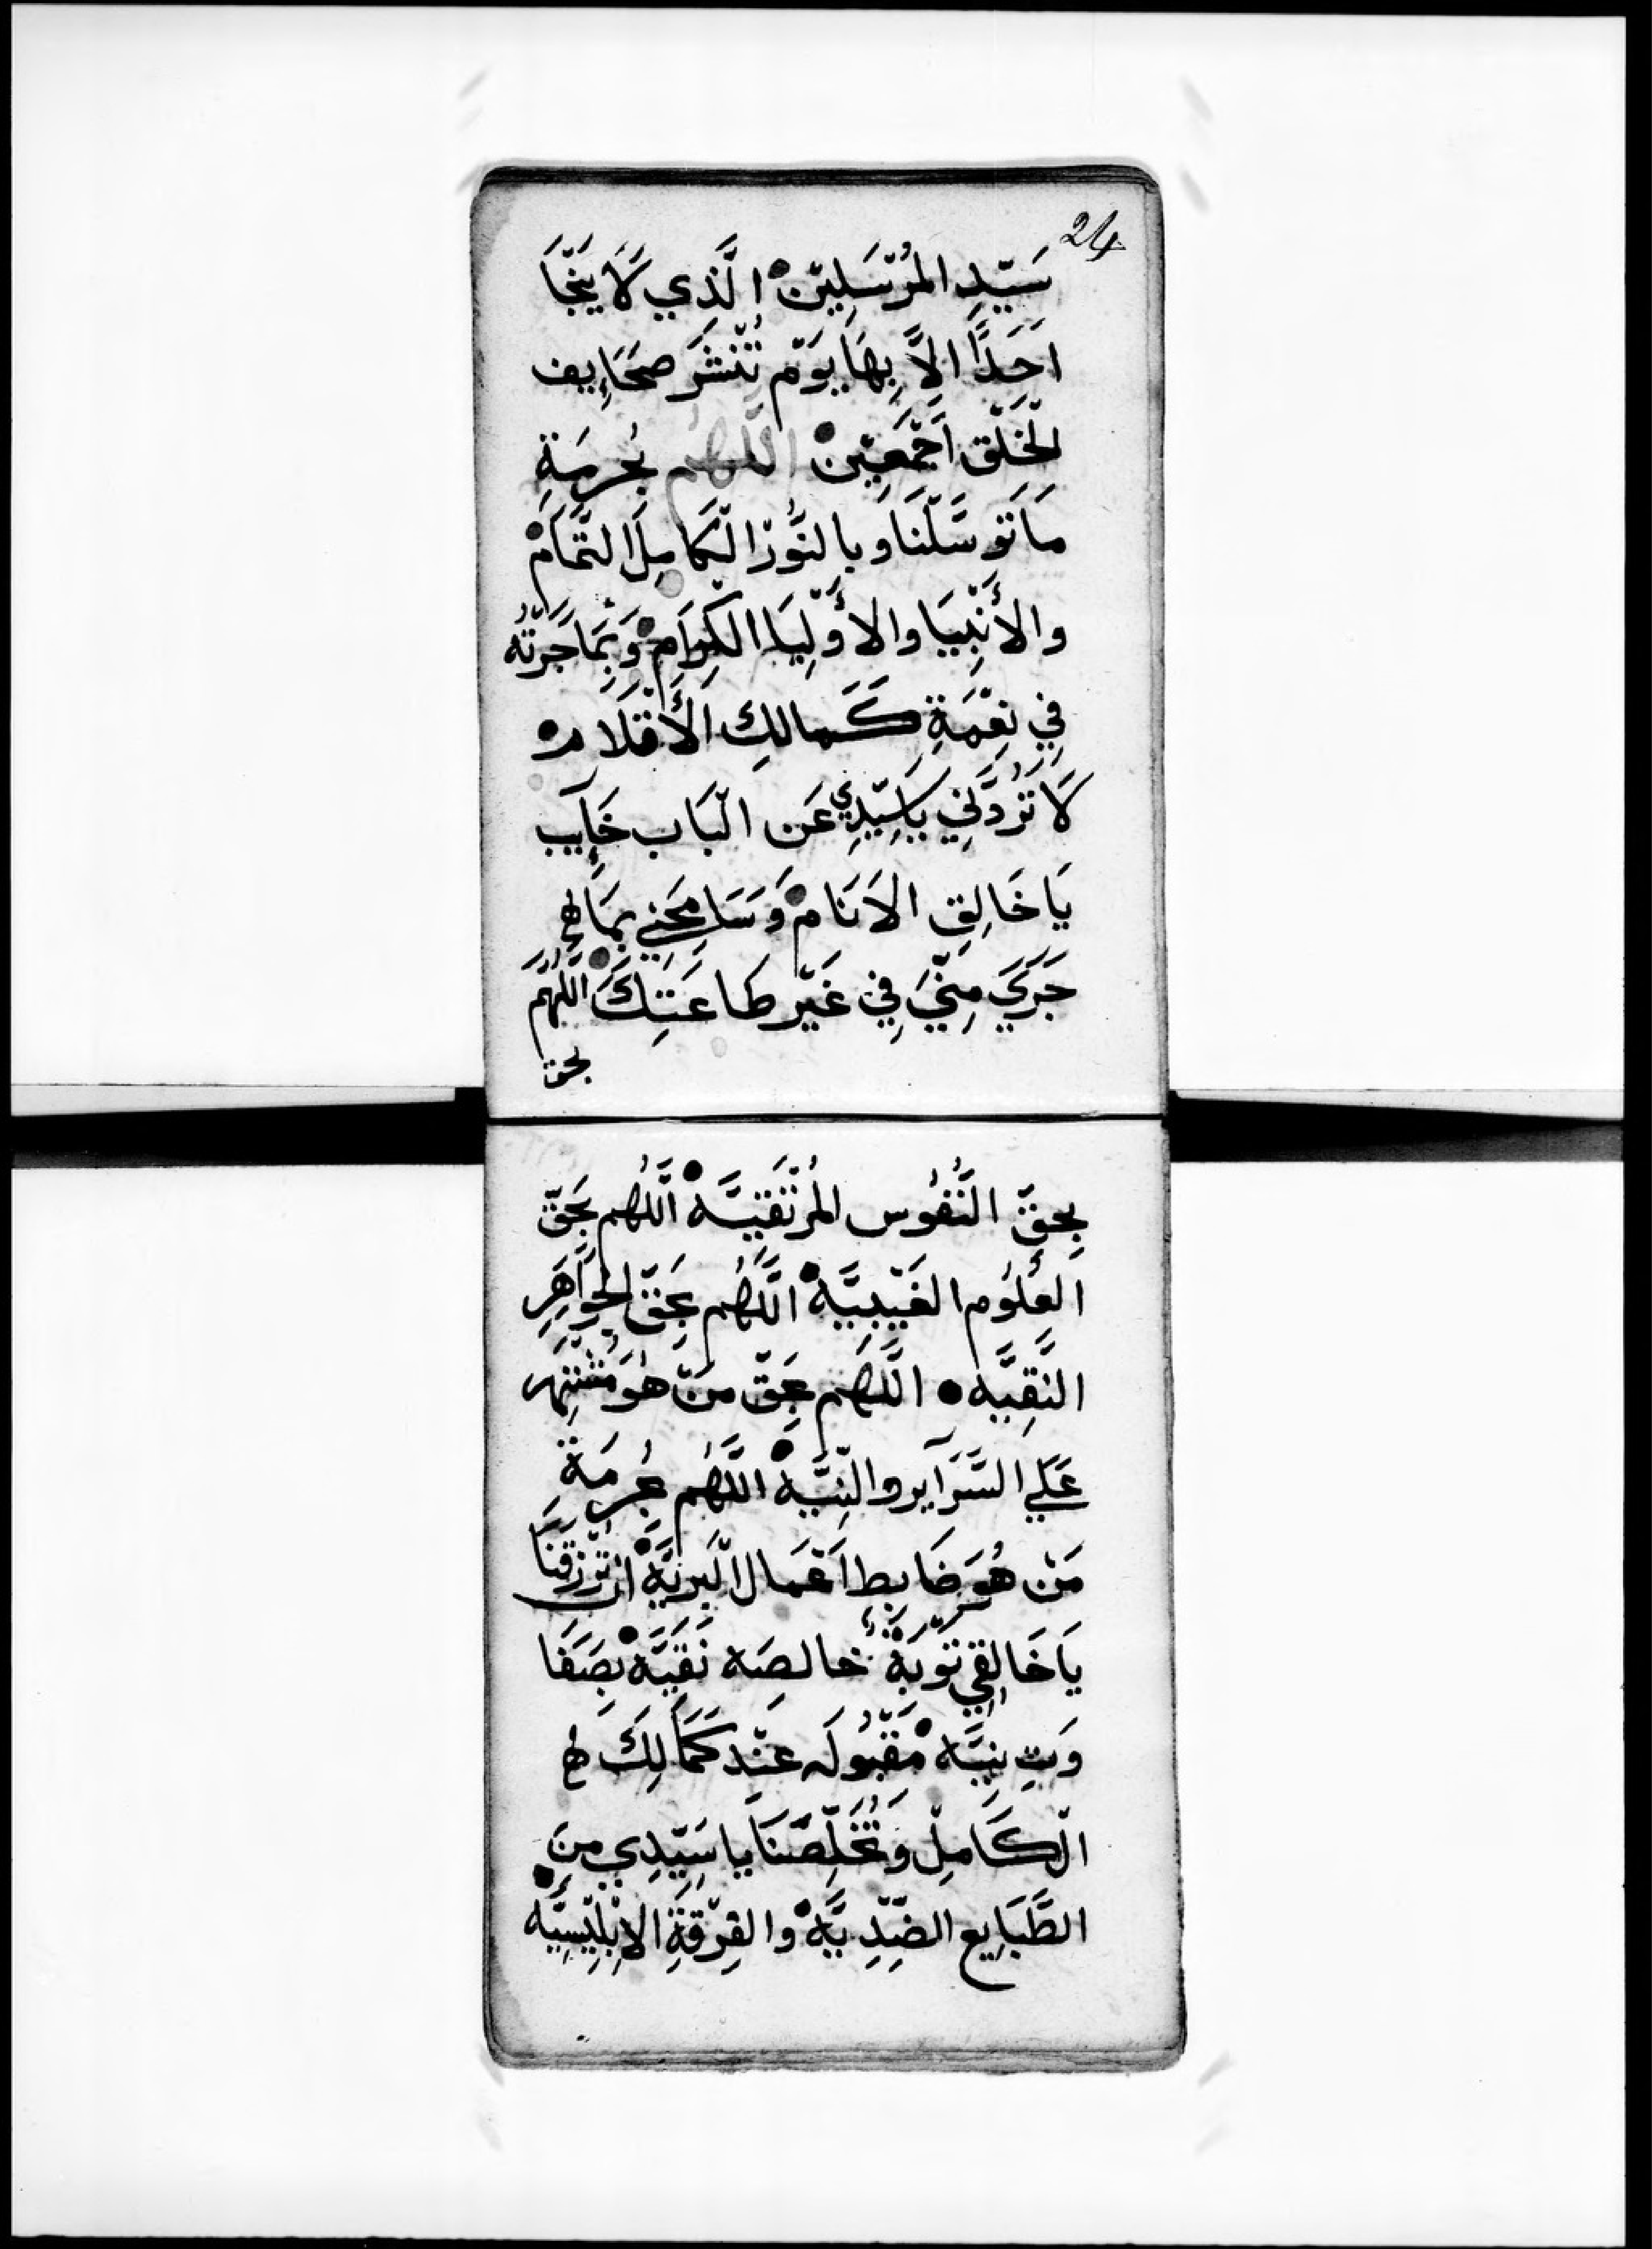 24
سَيّدِ المُرْسَلِيْنْ الَّذِي لَا يَنْجَا
اَحَدًا اِلاَّ بِهَا يَوْم تُنْشَرَ صحَايِف
الخَلْق اَجْمَعِيْنْ اللهم بحُرمَةِ
مَا تَوسَّلْنَا وبالنُّوْر الْكَامِل التَّمَامْ
والأَنْبِيَا والأَوْلِيَا الكِرَامْ وَبِمَا جَرَتْهُ
فِي نِعْمَةِ كَمالكِ الأَقْلَام
لَا تَرُدَّنِي يَاسَيّدِي عَن الْبَاب خَآيِب
يَا خَالِقِ الاَنَامْ وَسَامِحَنِي بمَا
جَرَي مِنِّي فِي غَيْر طاعَتِكَ اللَّهُمَ
بحق
بِحقّ النُّفُوس المُرْتَقيَّهْ اللَّهُم بحَقّ
العُلُوم الغَيْبِيَّهْ اللَّهُم بحَقّ الجَوَاهِرِ
النَّقِيَّه اللَّهُم بحَقّ مَنْ هُوَ مُشْتِهر
عَلَي السَّرَآير والنِيَّهْ اللَّهُم بحُرمَة
مَنْ هُوَ ضَابط اَعْمَال الْبَريَّهْ ان تَرْزقنَا
يَا خَالِقي تَوْبَةْ خالصَه نَقيَّهْ بصَفَا
وَتِ نِيَّه مَقْبُولَه عنْد كَمَالِكَ
الْكَامِلْ وَتُخَلِّصْنَا يا سَيّدِي مِنَ
الطَّبَايِع الضِّدِيَّهْ والفِرْقَةِ الاِبْلِيْسِيَّه